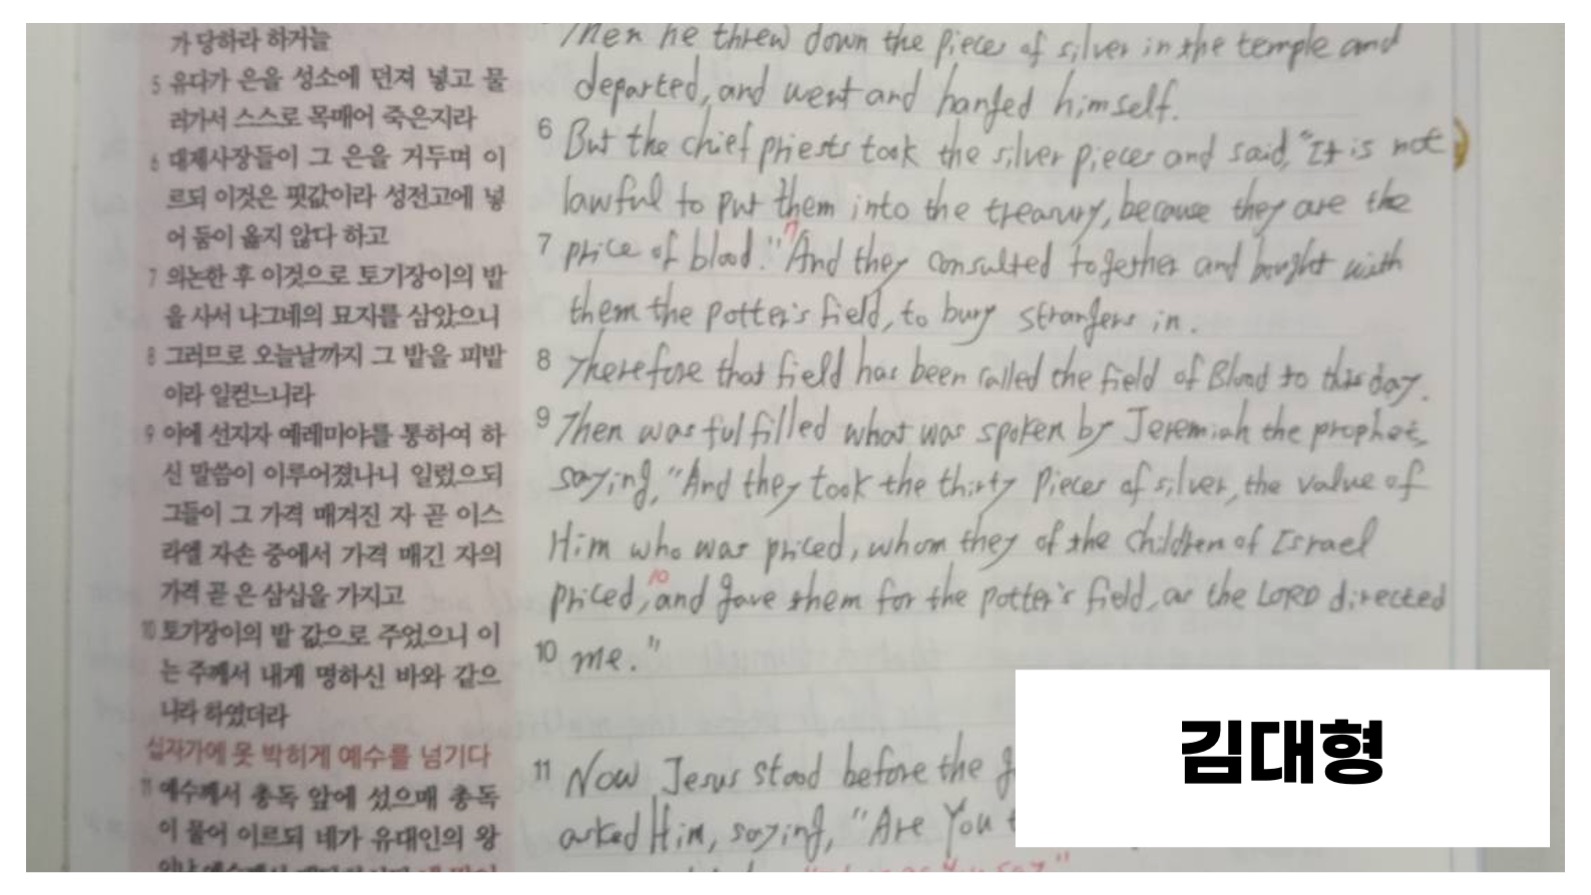 가 당하라 하거늘
5 유다가 은을 성소에 던져 넣고 물
러가서 스스로 목매어 죽은지라
6 대제사장들이 그 은을 거두며 이
르되 이것은 핏값이라 성전고에 넣
어 둠이 옳지 않다 하고
7 의논한 후 이것으로 토기장이의 밭
을 사서 나그네의 묘지를 삼았으니
8 그러므로 오늘날까지 그 밭을 피밭
이라 일컫느니라
9 이에 선지자 예레미야를 통하여 하
신 말씀이 이루어졌나니 일렀으되
그들이 그 가격 매겨진 자 곧 이스
라엘 자손 중에서 가격 매긴 자의
가격 곧 은 삼십을 가지고
10 토기장이의 밭 값으로 주었으니 이
는 주께서 내게 명하신 바와 같으
니라 하였더라
십자가에 못 박히게 예수를 넘기다
11 예수께서 총독 앞에 섰으매 총독
이 물어 이르되 네가 유대인의 왕
Then he threw down the pieces of silver in the temple and
departed, and went and hanged himself.
6 But the chief priests took the silver pieces and said, "It is not
lawful to put them into the treasury, because they are the
7 price of blood." 7 And they consulted together and bought with
them the potter's field, to bury strangers in.
8 Therefore that field has been called the field of Blood to this day.
9 Then was fulfilled what was spoken by Jeremiah the prophet,
saying, "And they took the thirty pieces of silver, the value of
Him who was priced, whom they of the children of Israel
priced, 10 and gave them for the potter's field, as the LORD directed
10 me."
11 Now Jesus stood before the
asked Him, saying, "Are You
김대형